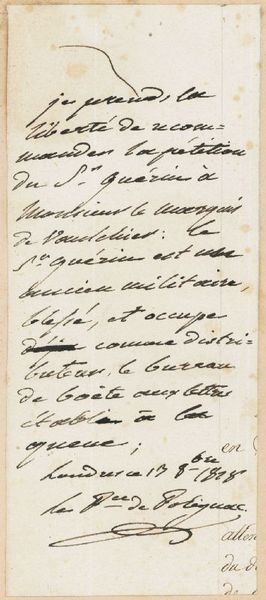 je prends, la
liberté de recom=
mander la pétition
du S.r Guérin à
Monsieur le marquis
de Vaulchier: le
S.r Guérin est un
ancien militaire,
blessé, et occupe
comme distri-
buteur, le bureau
de boëte aux lettres
établi à la
queue;
Londres ce 17 8bre 1828
le Pce de Polignac
en
atten
du d
de